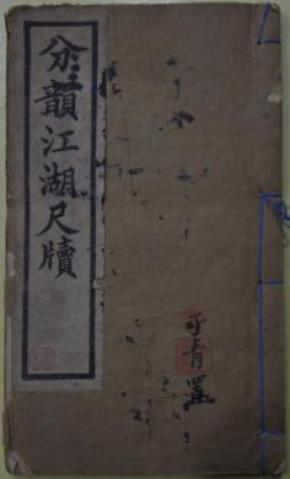 分韻江湖尺牘
青置